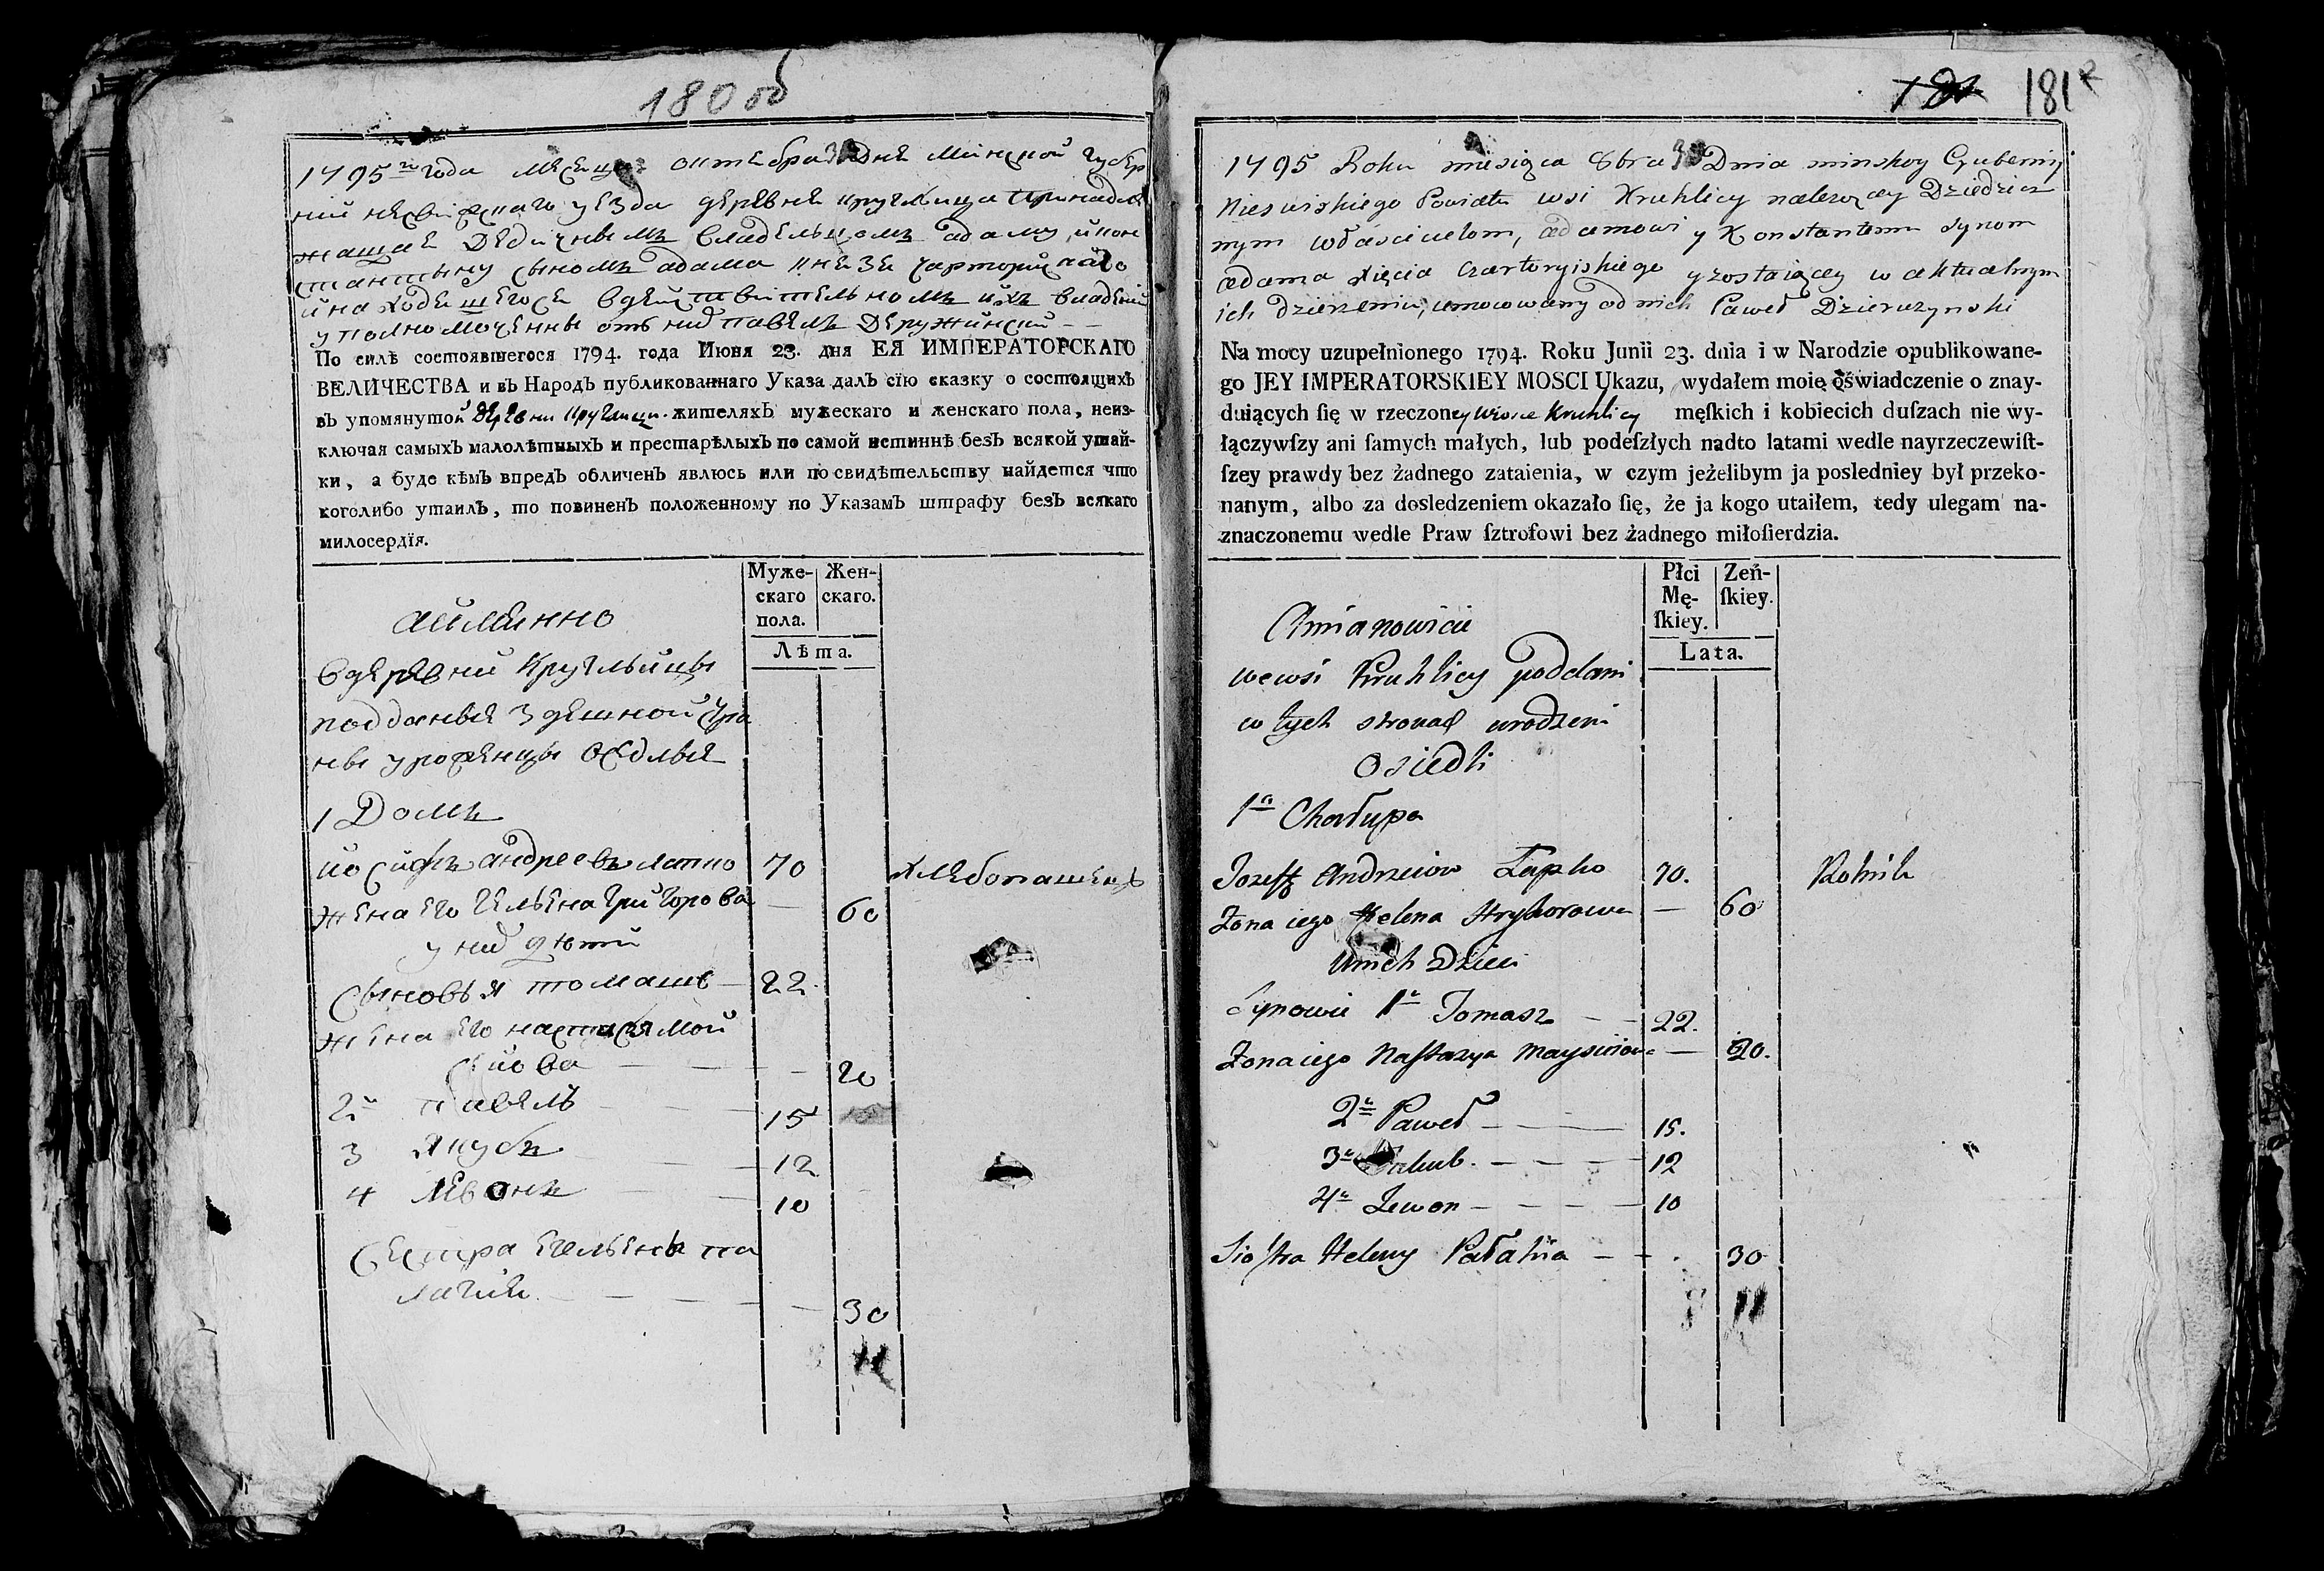 180 об
1795го года месеца октебра 30 дне Минской губер
ний несвижскаго уезда деревне кругльица принадле
жащае Дедичнымъ владельцомъ адаму, и кон
стантыну сыномъ адама кнезе чарторийскаго
и находещегосе вдействительномъ ихъ владений
уполномоченны отъ них павелъ Деружинский - -
По силѣ состоявшегося 1794. года Июня 23. дня ЕЯ ИМПЕРАТОРСКАГО
ВЕЛИЧЕСТВА и въ Народъ публикованнаго Указа далъ сїю сказку о состоящихъ
въ упомянутой деревни Круглици жителяхъ мужескаго и женскаго пола, неиз-
ключая самыхъ малолѣтныхъ и престарѣлыхъ по самой истиннѣ безъ всякой утай-
ки, а буде кѣмъ впредь обличенъ явлюсь или по свидѣтельству найдется что
коголибо утаилъ, то повиненъ положенному по Указамъ штрафу безъ всякаго
милосердїя.
Муже-скаго пола. Жен-скаго.
Лѣта.
аименно
вдеревни Кругльицы
подданые здешной стра
ны уроженцы оседлые
1 Домъ
иосифъ андреевъ лапко 70 хлебопашецъ
жена его гельена григорова — 60
у них дети
сыновья томашъ — 22.
жена его настася мой
сиова — — — 20
2й павелъ — — 15
3 Якубъ — — 12
4 левонъ — — 10
сестра гельены па
лагия — — — 30
181
1795 Roku miesiąca 8bra 30 Dnia minskey Gubernij
Nieswiskiego Powiatu wsi Kruhlicy należącey Dziedzicz
nym właścicielom, adamowi y Konstantemu synom
adama xięcia Czartoryiskiego y zostaiącey w aktualnym
ich dzierżeniu, umocowany od nich Paweł Dzierużynski
Na mocy uzupełnionego 1794. Roku Junii 23. dnia i w Narodzie opublikowane-
go JEY IMPERATORSKIEY MOSCI Ukazu, wydałem moię oświadczenie o znay-
duiących ſię w rzeczoney wiosce Kruhlicy męſkich i kobiecich duſzach nie wy-
łączywſzy ani ſamych małych, lub podeſzłych nadto latami wedle nayrzeczewiſt-
ſzey prawdy bez żadnego zataienia, w czym jeżelibym ja posledniey był przeko-
nanym, albo za dosledzeniem okazało ſię, że ja kogo utaiłem, tedy ulegam na-
znaczonemu wedle Praw ſztrofowi bez żadnego miłoſierdzia.
Płci Mę-ſkiey. Zeń-ſkiey.
Lata.
Amianowicie
we wsi Kruhlicy poddani
w tych stronach urodzeni
Osiedli
1a Chałupa
Jozeff Andrzeiow Łapko 70. Rolnik
Żona iego Helena Hryhorowa — 60
Unich Dzieci
Synowie 1y Tomasz — — 22.
Żona iego Nastazya Mayseiowa — 20.
2y Paweł — — 15.
3y Jakub. — — — 12
4y Lewon — — — 10
Siostra Heleny Pałahia — — 30